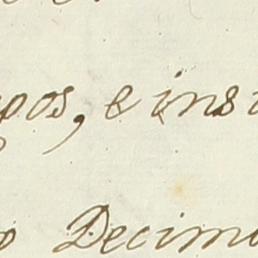 pos, e ins
o Decimo